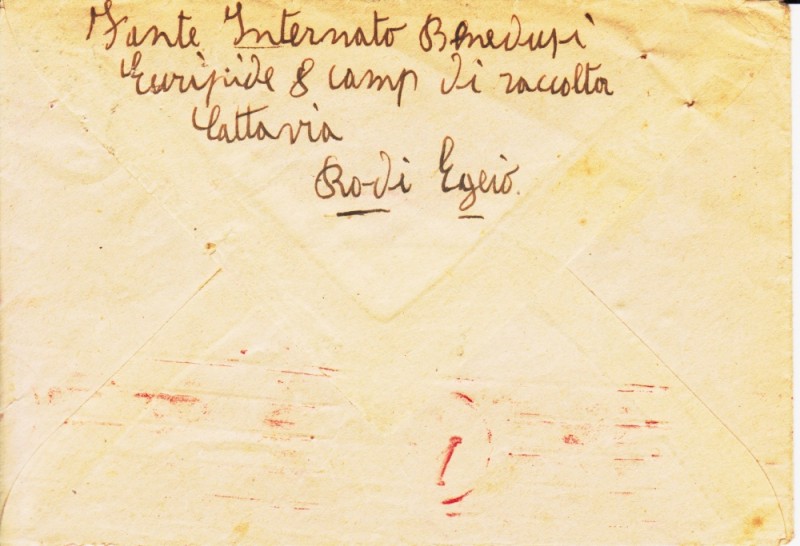 Fante Internato Benedusi
Euripide 8 camp di raccolta
Cattavia
Rodi Egeio.